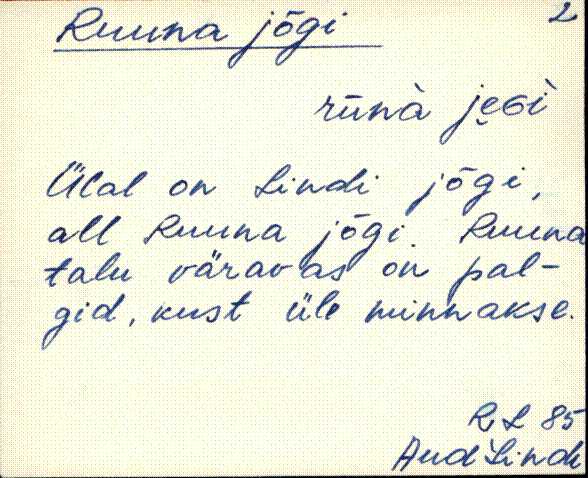 2
Ruuna jõgi
rūnà
Ülal on Lindi jõgi,
all Ruuna jõgi. Ruuna
talu väravas on pal-
gid, kust üle minnakse.
R L 85
Aud Lindi